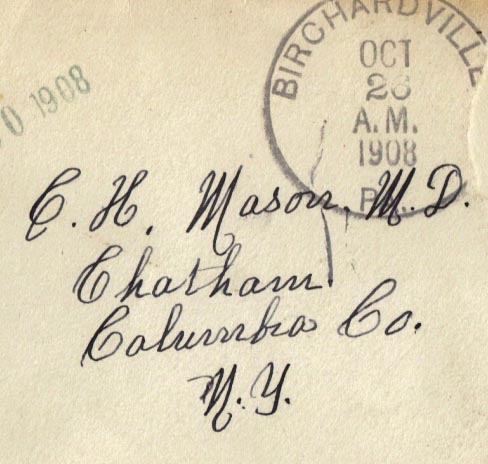 BIRCHARDVILLE
OCT
26
A.M.
1908
P
0 1908
C. H. Mason, M.D.
Chatham
Columbia Co.
N.Y.